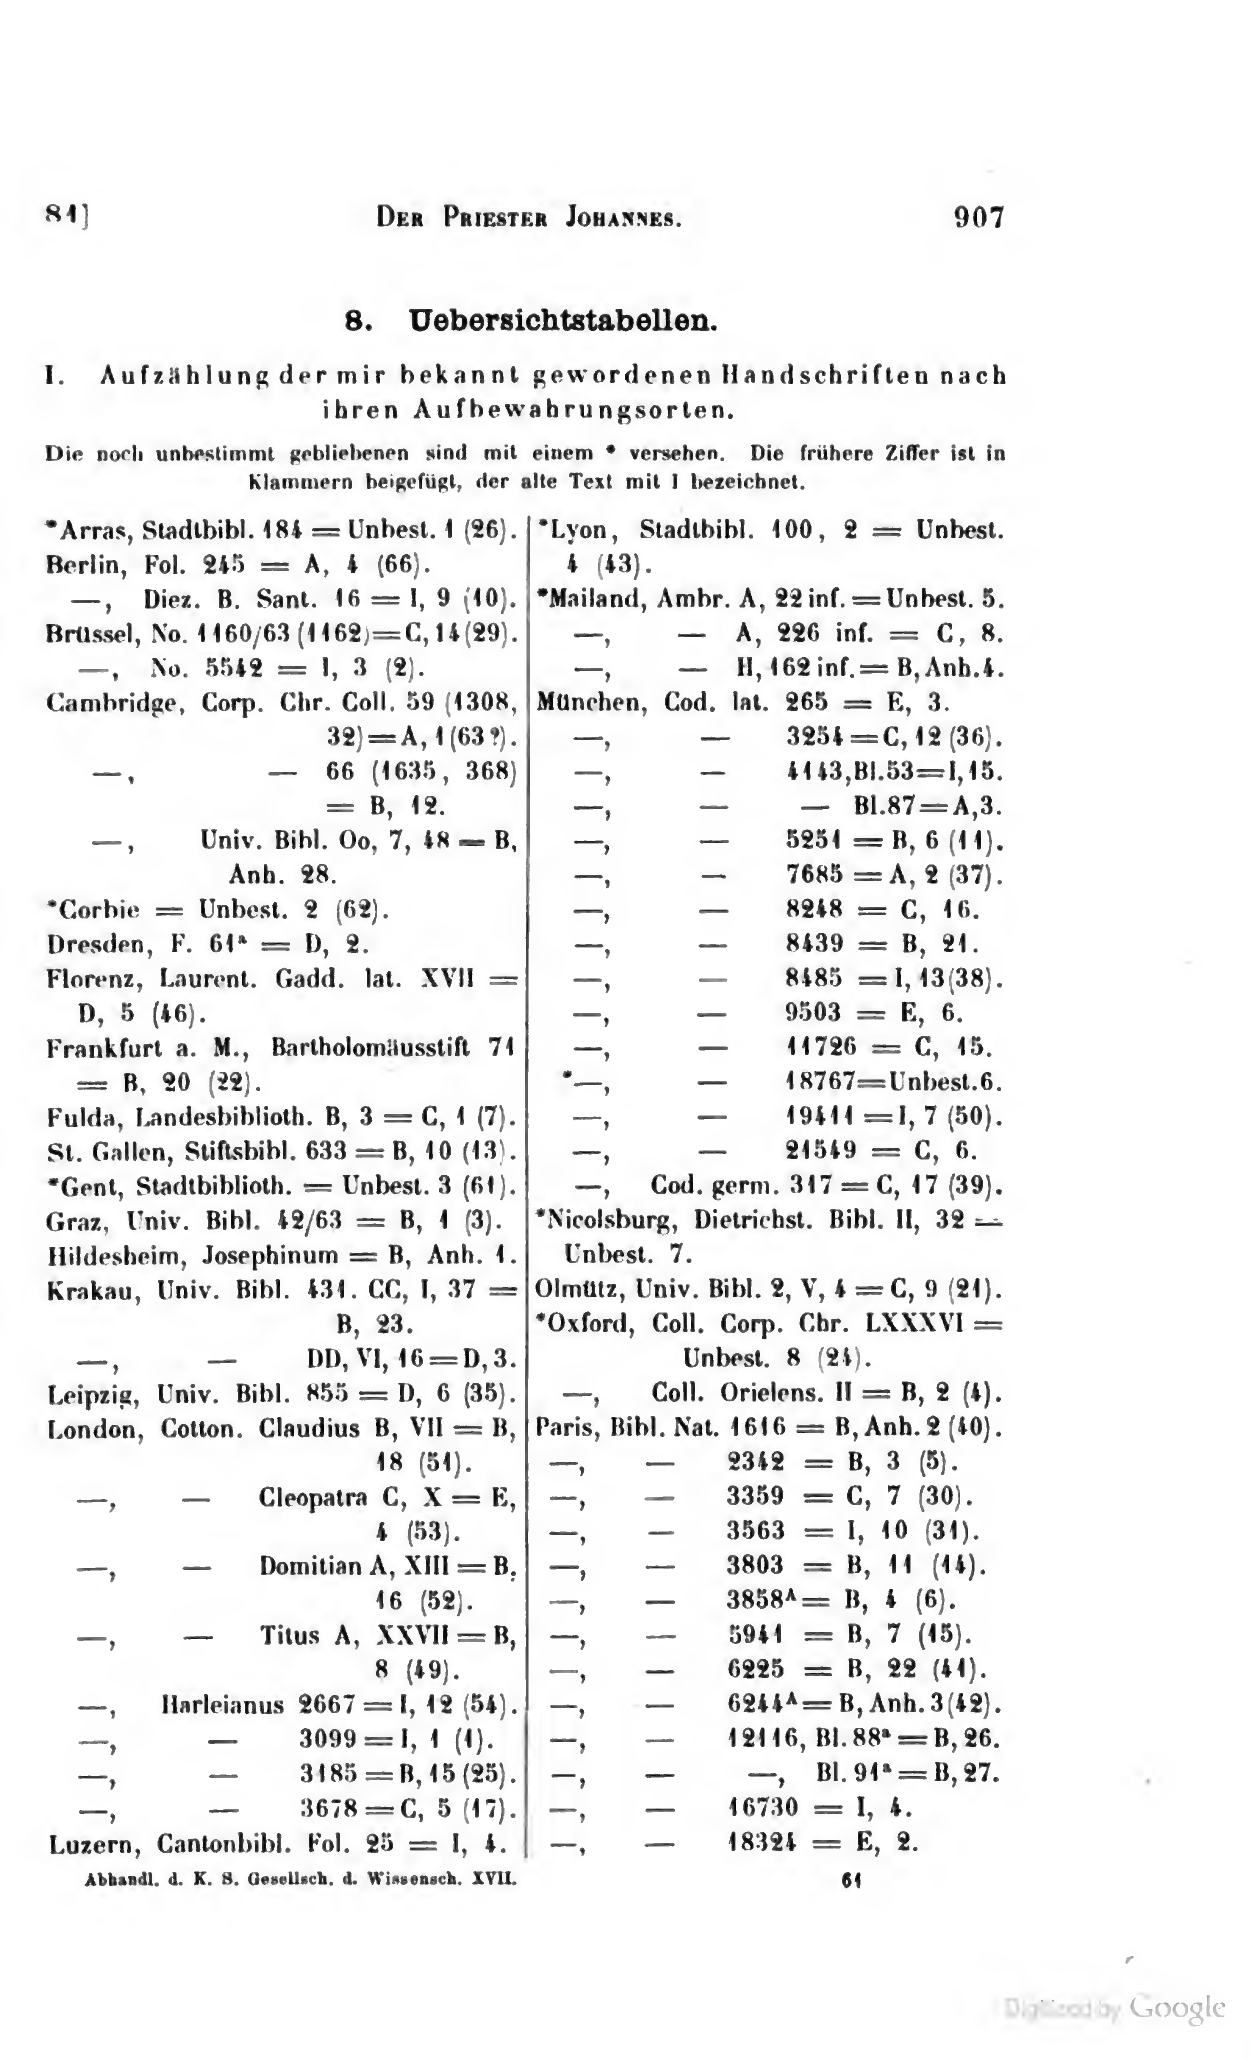 81] DER PRIESTER JOHANNES. 907
8. Uebersichtstabellen.
I. Aufzählung der mir bekannt gewordenen Handschriften nach
ihren Aufbewahrungsorten.
Die noch unbestimmt gebliebenen sind mit einem * versehen. Die frühere Ziffer ist in
Klammern beigefügt, der alte Text mit I bezeichnet.
*Arras, Stadtbibl. 184 = Unbest. 1 (26).
Berlin, Fol. 245 = A, 4 (66).
—, Diez. B. Sant. 16 = I, 9 (10).
Brüssel, No. 1160/63 (1162) = C, 14 (29).
—, No. 5542 = I, 3 (2).
Cambridge, Corp. Chr. Coll. 59 (1308,
32) = A, 1 (63?).
—, — 66 (1635, 368)
= B, 12.
—, Univ. Bibl. Oo, 7, 48 = B,
Anh. 28.
*Corbie = Unbest. 2 (62).
Dresden, F. 61ª = D, 2.
Florenz, Laurent. Gadd. lat. XVII =
D, 5 (46).
Frankfurt a. M., Bartholomäusstift 71
= B, 20 (22).
Fulda, Landesbiblioth. B, 3 = C, 1 (7).
St. Gallen, Stiftsbibl. 633 = B, 10 (13).
*Gent, Stadtbiblioth. = Unbest. 3 (61).
Graz, Univ. Bibl. 42/63 = B, 1 (3).
Hildesheim, Josephinum = B, Anh. 1.
Krakau, Univ. Bibl. 431. CC, I, 37 =
B, 23.
—, — DD, VI, 16 = D, 3.
Leipzig, Univ. Bibl. 855 = D, 6 (35).
London, Cotton. Claudius B, VII = B,
18 (51).
—, — Cleopatra C, X = E,
4 (53).
—, — Domitian A, XIII = B,
16 (52).
—, — Titus A, XXVII = B,
8 (49).
—, Harleianus 2667 = I, 12 (54).
—, — 3099 = I, 1 (1).
—, — 3185 = B, 15 (25).
—, — 3678 = C, 5 (17).
Luzern, Cantonbibl. Fol. 25 = I, 4.
*Lyon, Stadtbibl. 100, 2 = Unbest.
4 (43).
*Mailand, Ambr. A, 22 inf. = Unbest. 5.
—, — A, 226 inf. = C, 8.
—, — H, 162 inf. = B, Anh. 4.
München, Cod. lat. 265 = E, 3.
—, — 3254 = C, 12 (36).
—, — 4143, Bl. 53 = I, 15.
—, — — Bl. 87 = A, 3.
—, — 5251 = B, 6 (11).
—, — 7685 = A, 2 (37).
—, — 8248 = C, 16.
—, — 8439 = B, 21.
—, — 8485 = I, 13 (38).
—, — 9503 = E, 6.
—, — 11726 = C, 15.
*—, — 18767 = Unbest. 6.
—, — 19411 = I, 7 (50).
—, — 21549 = C, 6.
—, Cod. germ. 317 = C, 17 (39).
*Nicolsburg, Dietrichst. Bibl. II, 32 =
Unbest. 7.
Olmütz, Univ. Bibl. 2, V, 4 = C, 9 (21).
*Oxford, Coll. Corp. Chr. LXXXVI =
Unbest. 8 (24).
—, Coll. Orielens. II = B, 2 (4).
Paris, Bibl. Nat. 1616 = B, Anh. 2 (40).
—, — 2342 = B, 3 (5).
—, — 3359 = C, 7 (30).
—, — 3563 = I, 10 (31).
—, — 3803 = B, 11 (14).
—, — 3858ᴬ = B, 4 (6).
—, — 5941 = B, 7 (15).
—, — 6225 = B, 22 (41).
—, — 6244ᴬ = B, Anh. 3 (42).
—, — 12116, Bl. 88ª = B, 26.
—, — —, Bl. 91ª = B, 27.
—, — 16730 = I, 4.
—, — 18324 = E, 2.
Abhandl. d. K. S. Gesellsch. d. Wissensch. XVII. 61
Digitized by Google